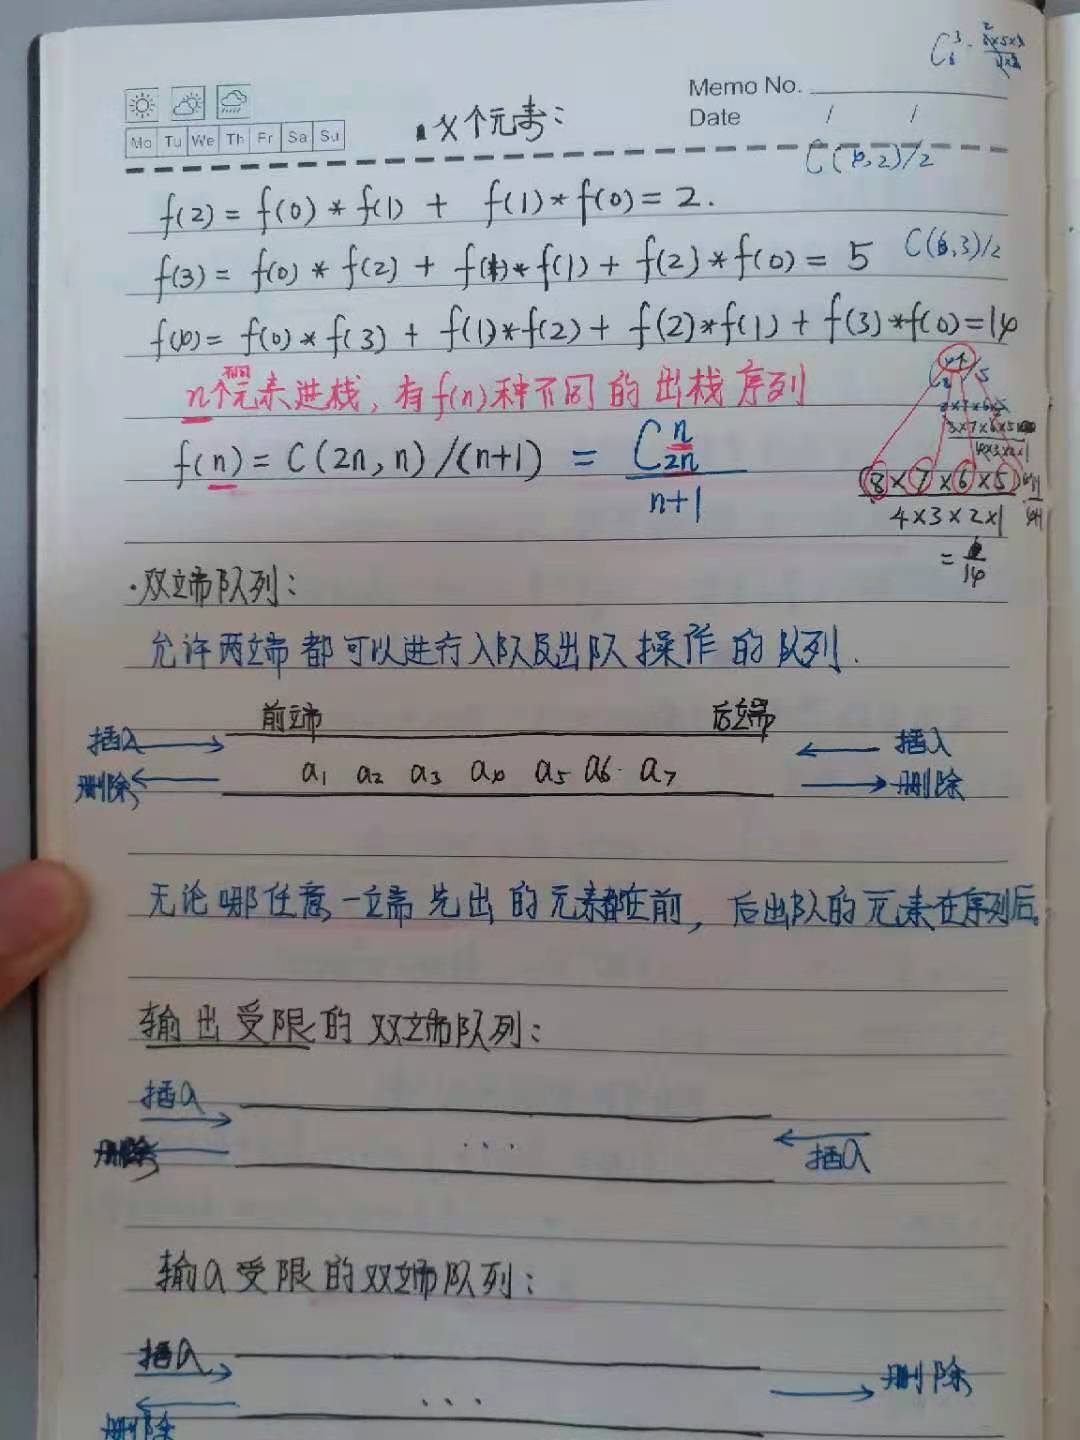 Memo No.
Date / /
Mo Tu We Th Fr Sa Su
·x个元素:
C(n,2)/2
f(2) = f(0) * f(1) + f(1) * f(0) = 2.
f(3) = f(0) * f(2) + f(1) * f(1) + f(2) * f(0) = 5 C(6,3)/2
f(4) = f(0) * f(3) + f(1) * f(2) + f(2) * f(1) + f(3) * f(0) = 14
n个元素进栈,有f(n)种不同的出栈序列
f(n) = C(2n, n) /(n+1) = C 2n n / n+1
8 × 7 × 6 × 5
4 × 3 × 2 × 1
= 14
·双端队列:
允许两端都可以进行入队及出队操作的队列.
前端 后端
插入 插入
a1 a2 a3 a4 a5 a6 a7
删除 删除
无论哪任意一端先出的元素都在前,后出队的元素在序列后。
输出受限的双端队列:
插入
删除 ... 插入
输入受限的双端队列:
插入 删除
...
删除